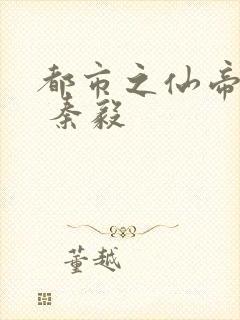 都市之仙帝
秦毅
董越